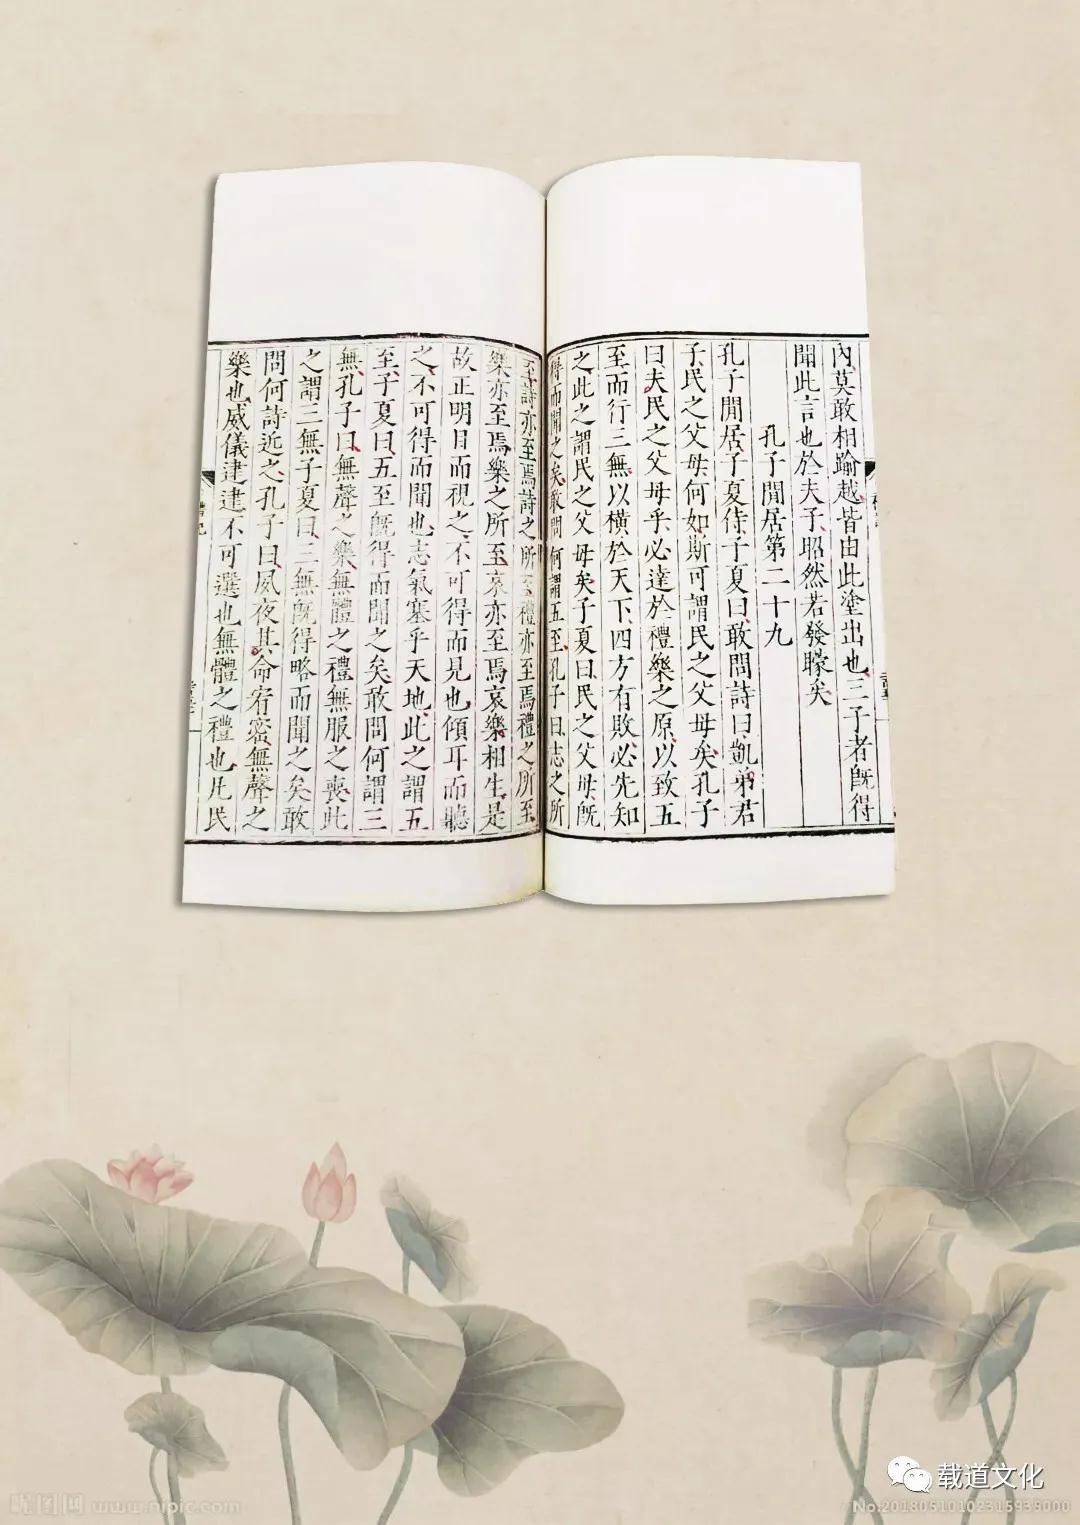 內莫敢相踰越皆由此塗出也三子者旣得
聞此言也於夫子昭然若發矇矣
孔子閒居第二十九
孔子閒居子夏侍子夏曰敢問詩曰凱弟君
子民之父母何如斯可謂民之父母矣孔子
曰夫民之父母乎必達於禮樂之原以致五
至而行三無以橫於天下四方有敗必先知
之此之謂民之父母矣子夏曰民之父母旣
得而聞之矣敢問何謂五至孔子曰志之所
至詩亦至焉詩之所至禮亦至焉禮之所至
樂亦至焉樂之所至哀亦至焉哀樂相生是
故正明目而視之不可得而見也傾耳而聽
之不可得而聞也志氣塞乎天地此之謂五
至子夏曰五至旣得而聞之矣敢問何謂三
無孔子曰無聲之樂無體之禮無服之喪此
之謂三無子夏曰三無旣得略而聞之矣敢
問何詩近之孔子曰夙夜其命宥密無聲之
樂也威儀逮逮不可選也無體之禮也凡民
禮記
载道文化
昵图网 www.nipic.com
No:20180510102315939000